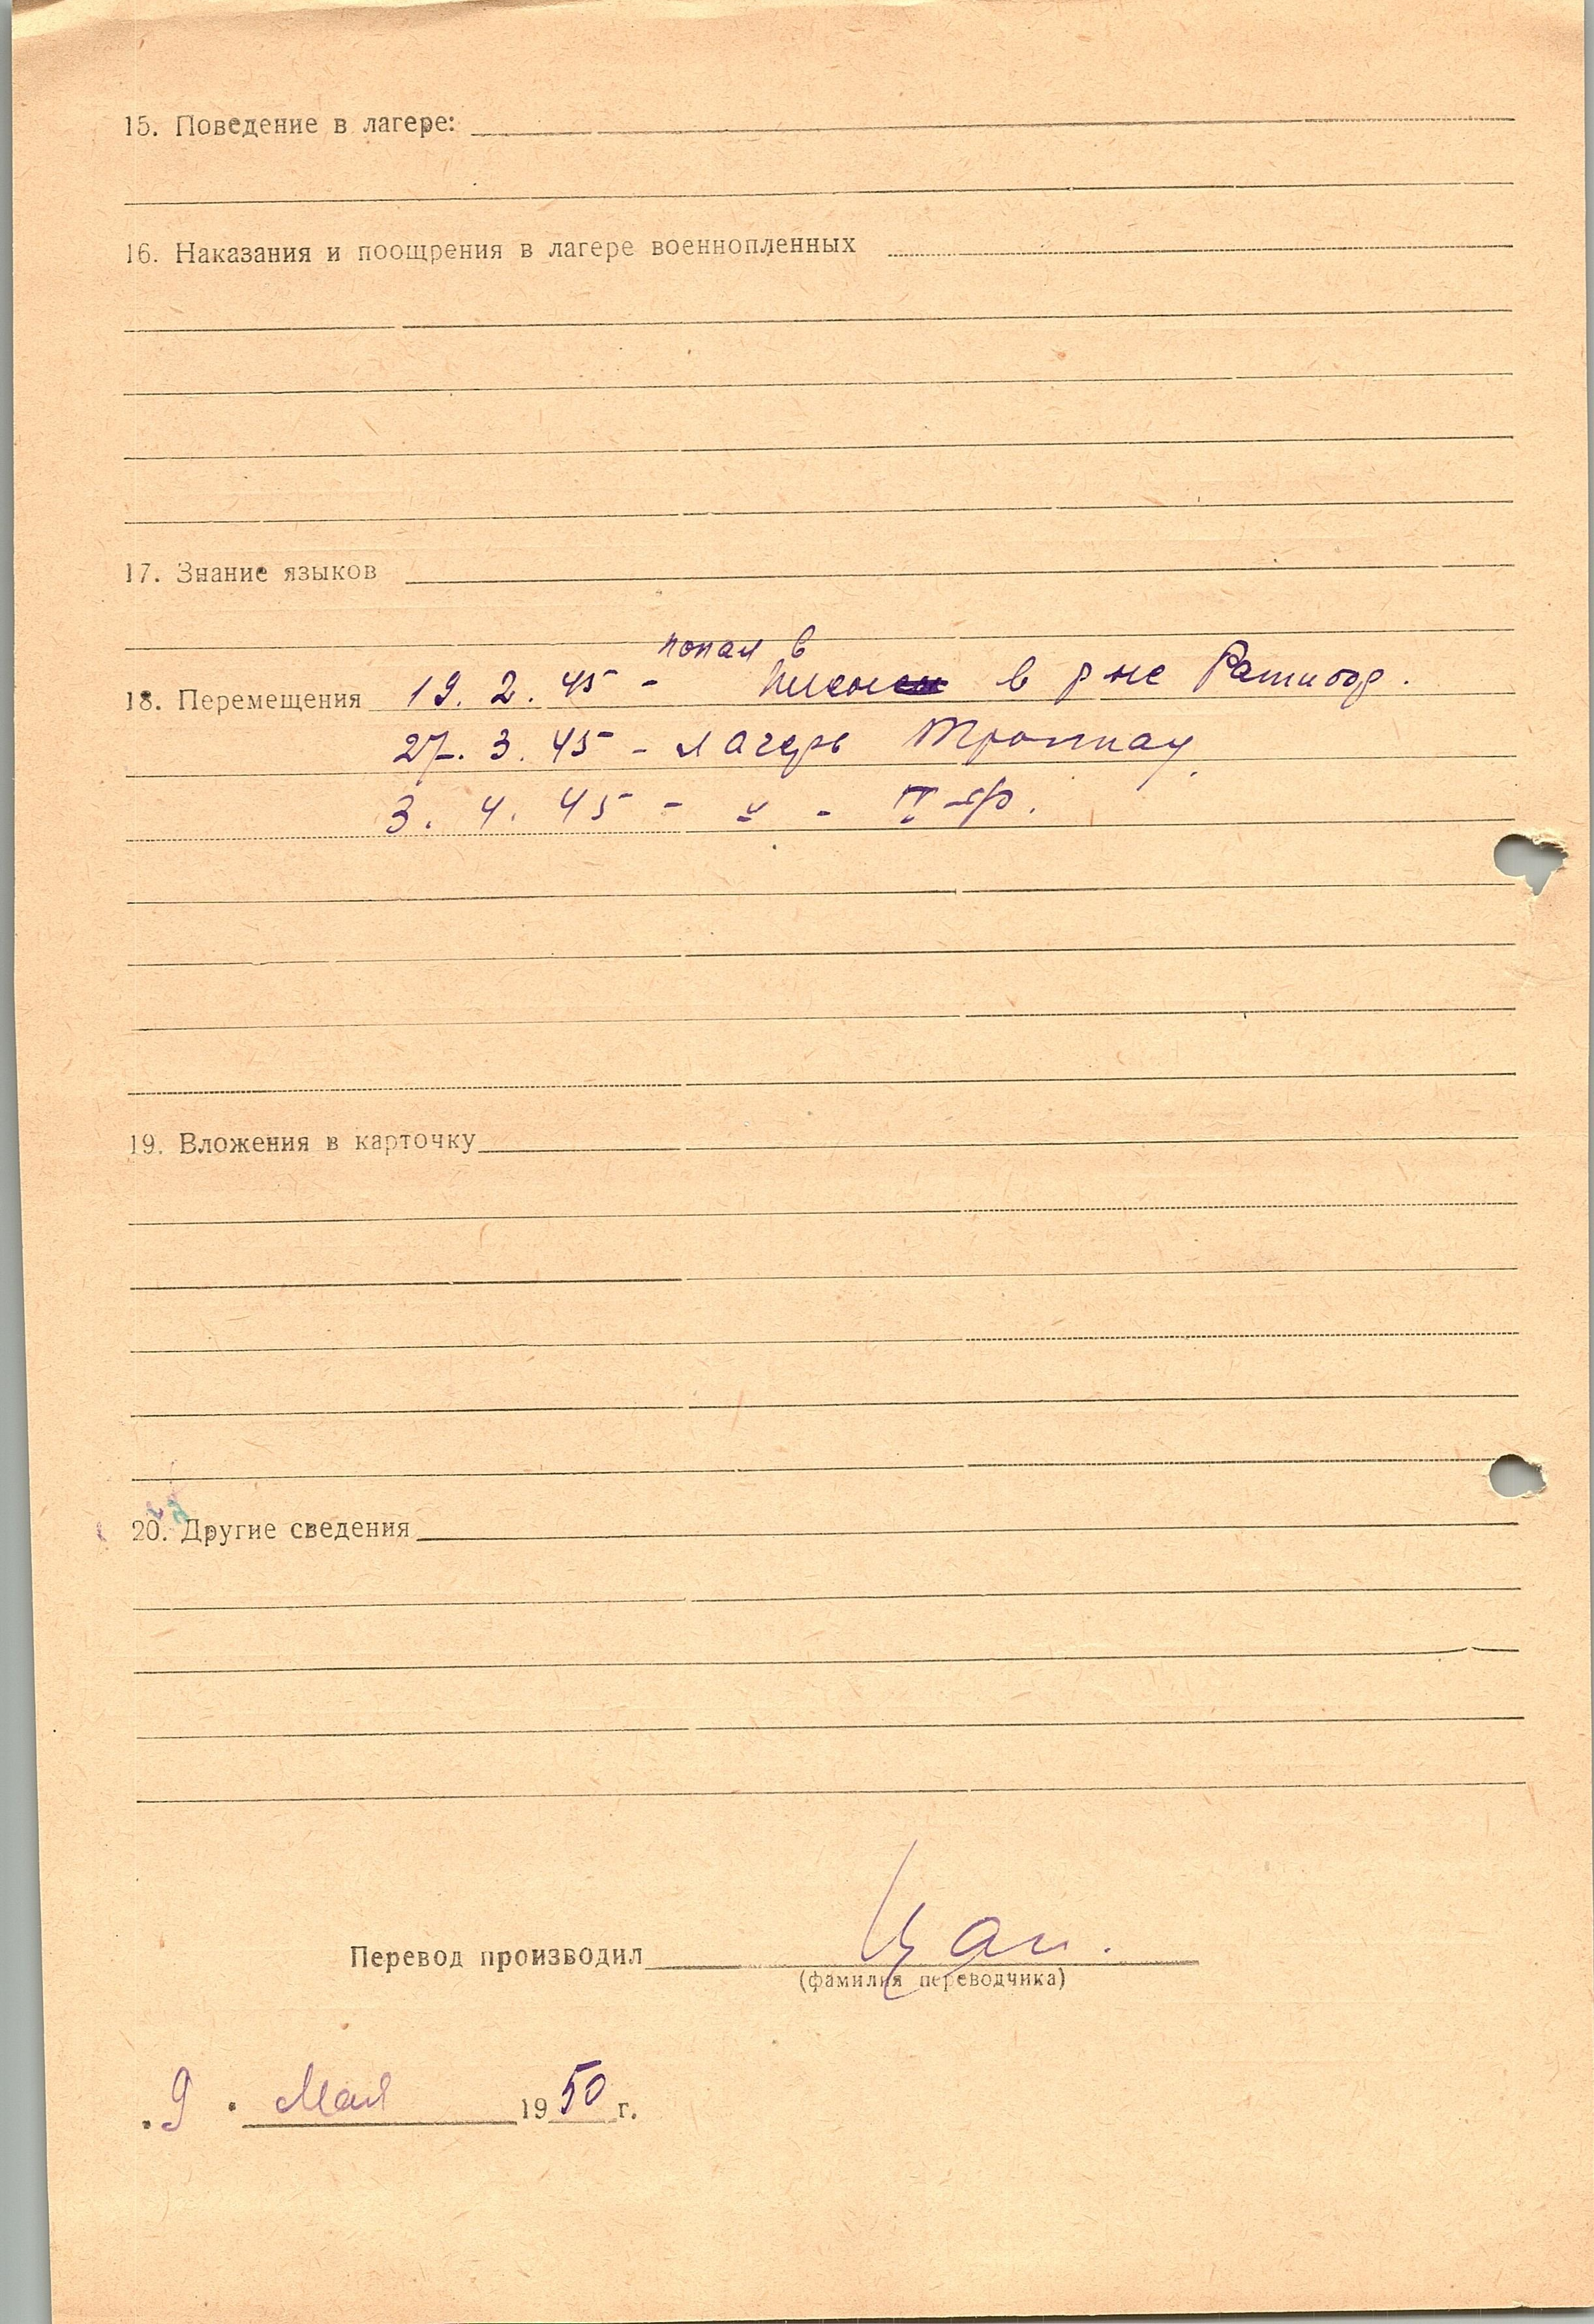 15. Поведение в лагере:
16. Наказания и поощрения в лагере военнопленных
17. Знание языков
попал в
18. Перемещения 19. 2. 45 - плен в р-не Ратибор.
27. 3. 45 - лагерь Троппау
3. 4. 45 - " -
19. Вложения в карточку
20. Другие сведения
Перевод производил
(фамилия переводчика)
" 9 " Мая 1950 г.